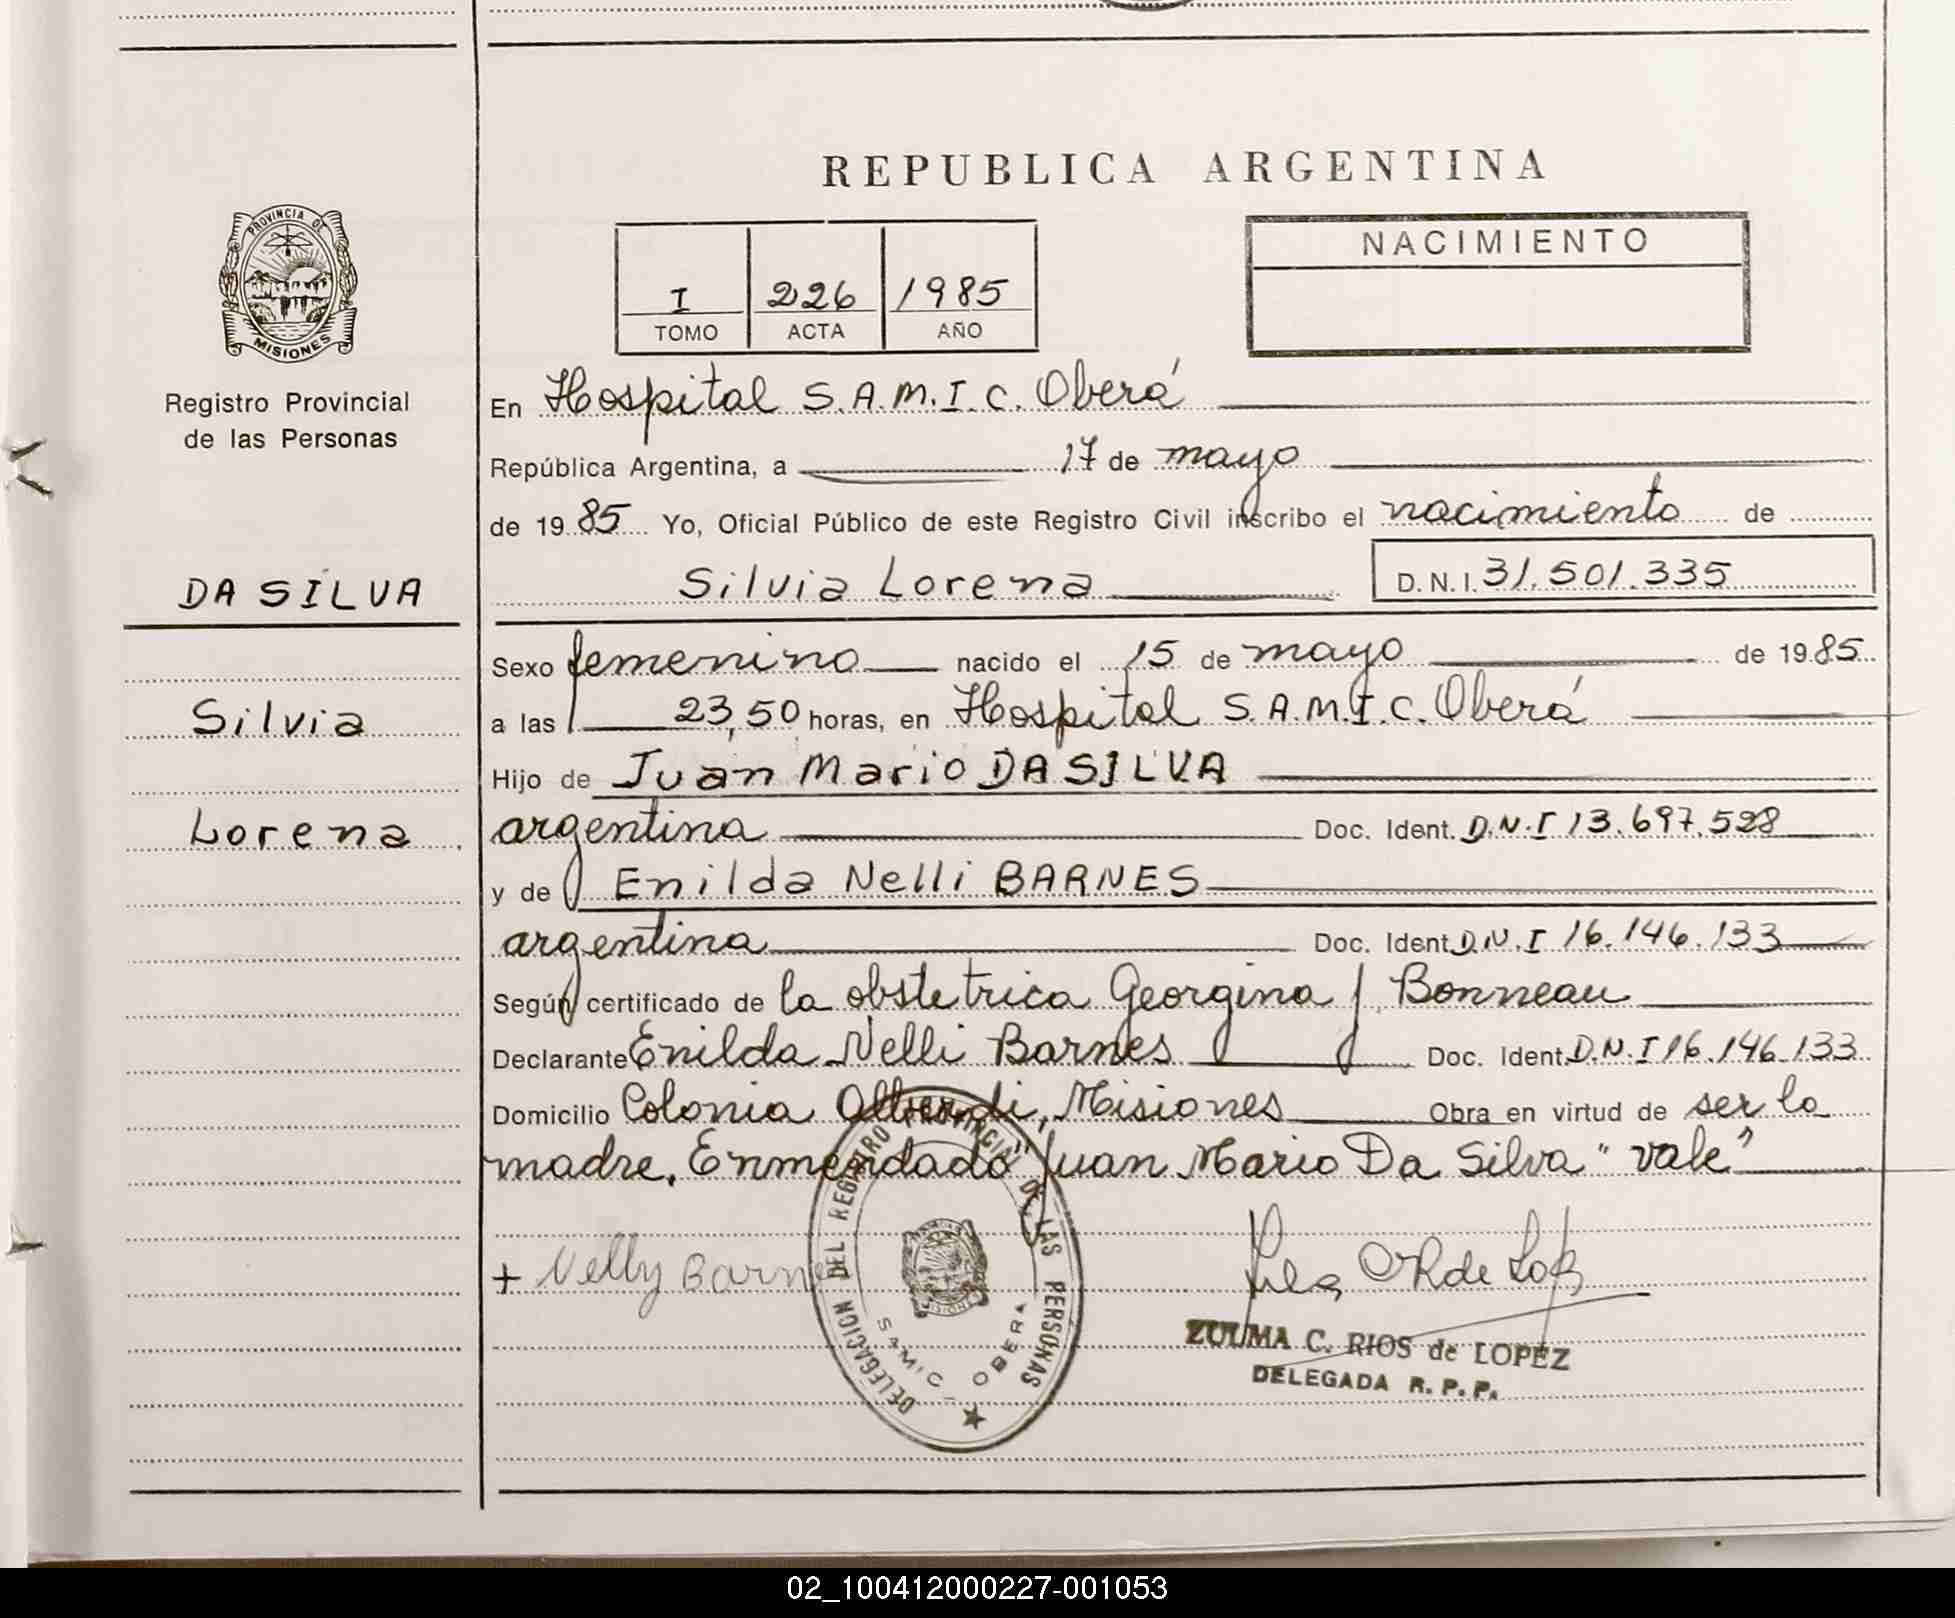 REPUBLICA ARGENTINA
PROVINCIA DE
MISIONES
Registro Provincial
de las Personas
I 226 1985
TOMO ACTA AÑO
NACIMIENTO
En Hospital S.A.M.I.C. Oberá
República Argentina, a 17 de mayo
de 19 85 Yo, Oficial Público de este Registro Civil inscribo el nacimiento de
DA SILVA
Silvia Lorena D.N.I. 31.501.335
Sexo femenino nacido el 15 de mayo de 19 85
Silvia
a las 23,50 horas, en Hospital S.A.M.I.C. Oberá
Hijo de Juan Mario DA SILVA
Lorena
argentina Doc. Ident. D.N.I 13.697.528
y de Enilda Nelli BARNES
argentina Doc. Ident. D.N.I 16.146.133
Según certificado de la obstetrica Georgina J. Bonneau
Declarante Enilda Nelli Barnes Doc. Ident. D.N.I 16.146.133
Domicilio Colonia Alberdi, Misiones Obra en virtud de ser la
madre. Enmendado "Juan Mario Da Silva" vale"
+ Nelly Barne
DELEGACION DEL REGISTRO PROVINCIAL DE LAS PERSONAS
SAMIC - OBERA
MISIONES
ZULMA C. RIOS de LOPEZ
DELEGADA R. P. P.
02_100412000227-001053